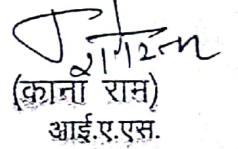 (काना राम)
आई.ए.एस.